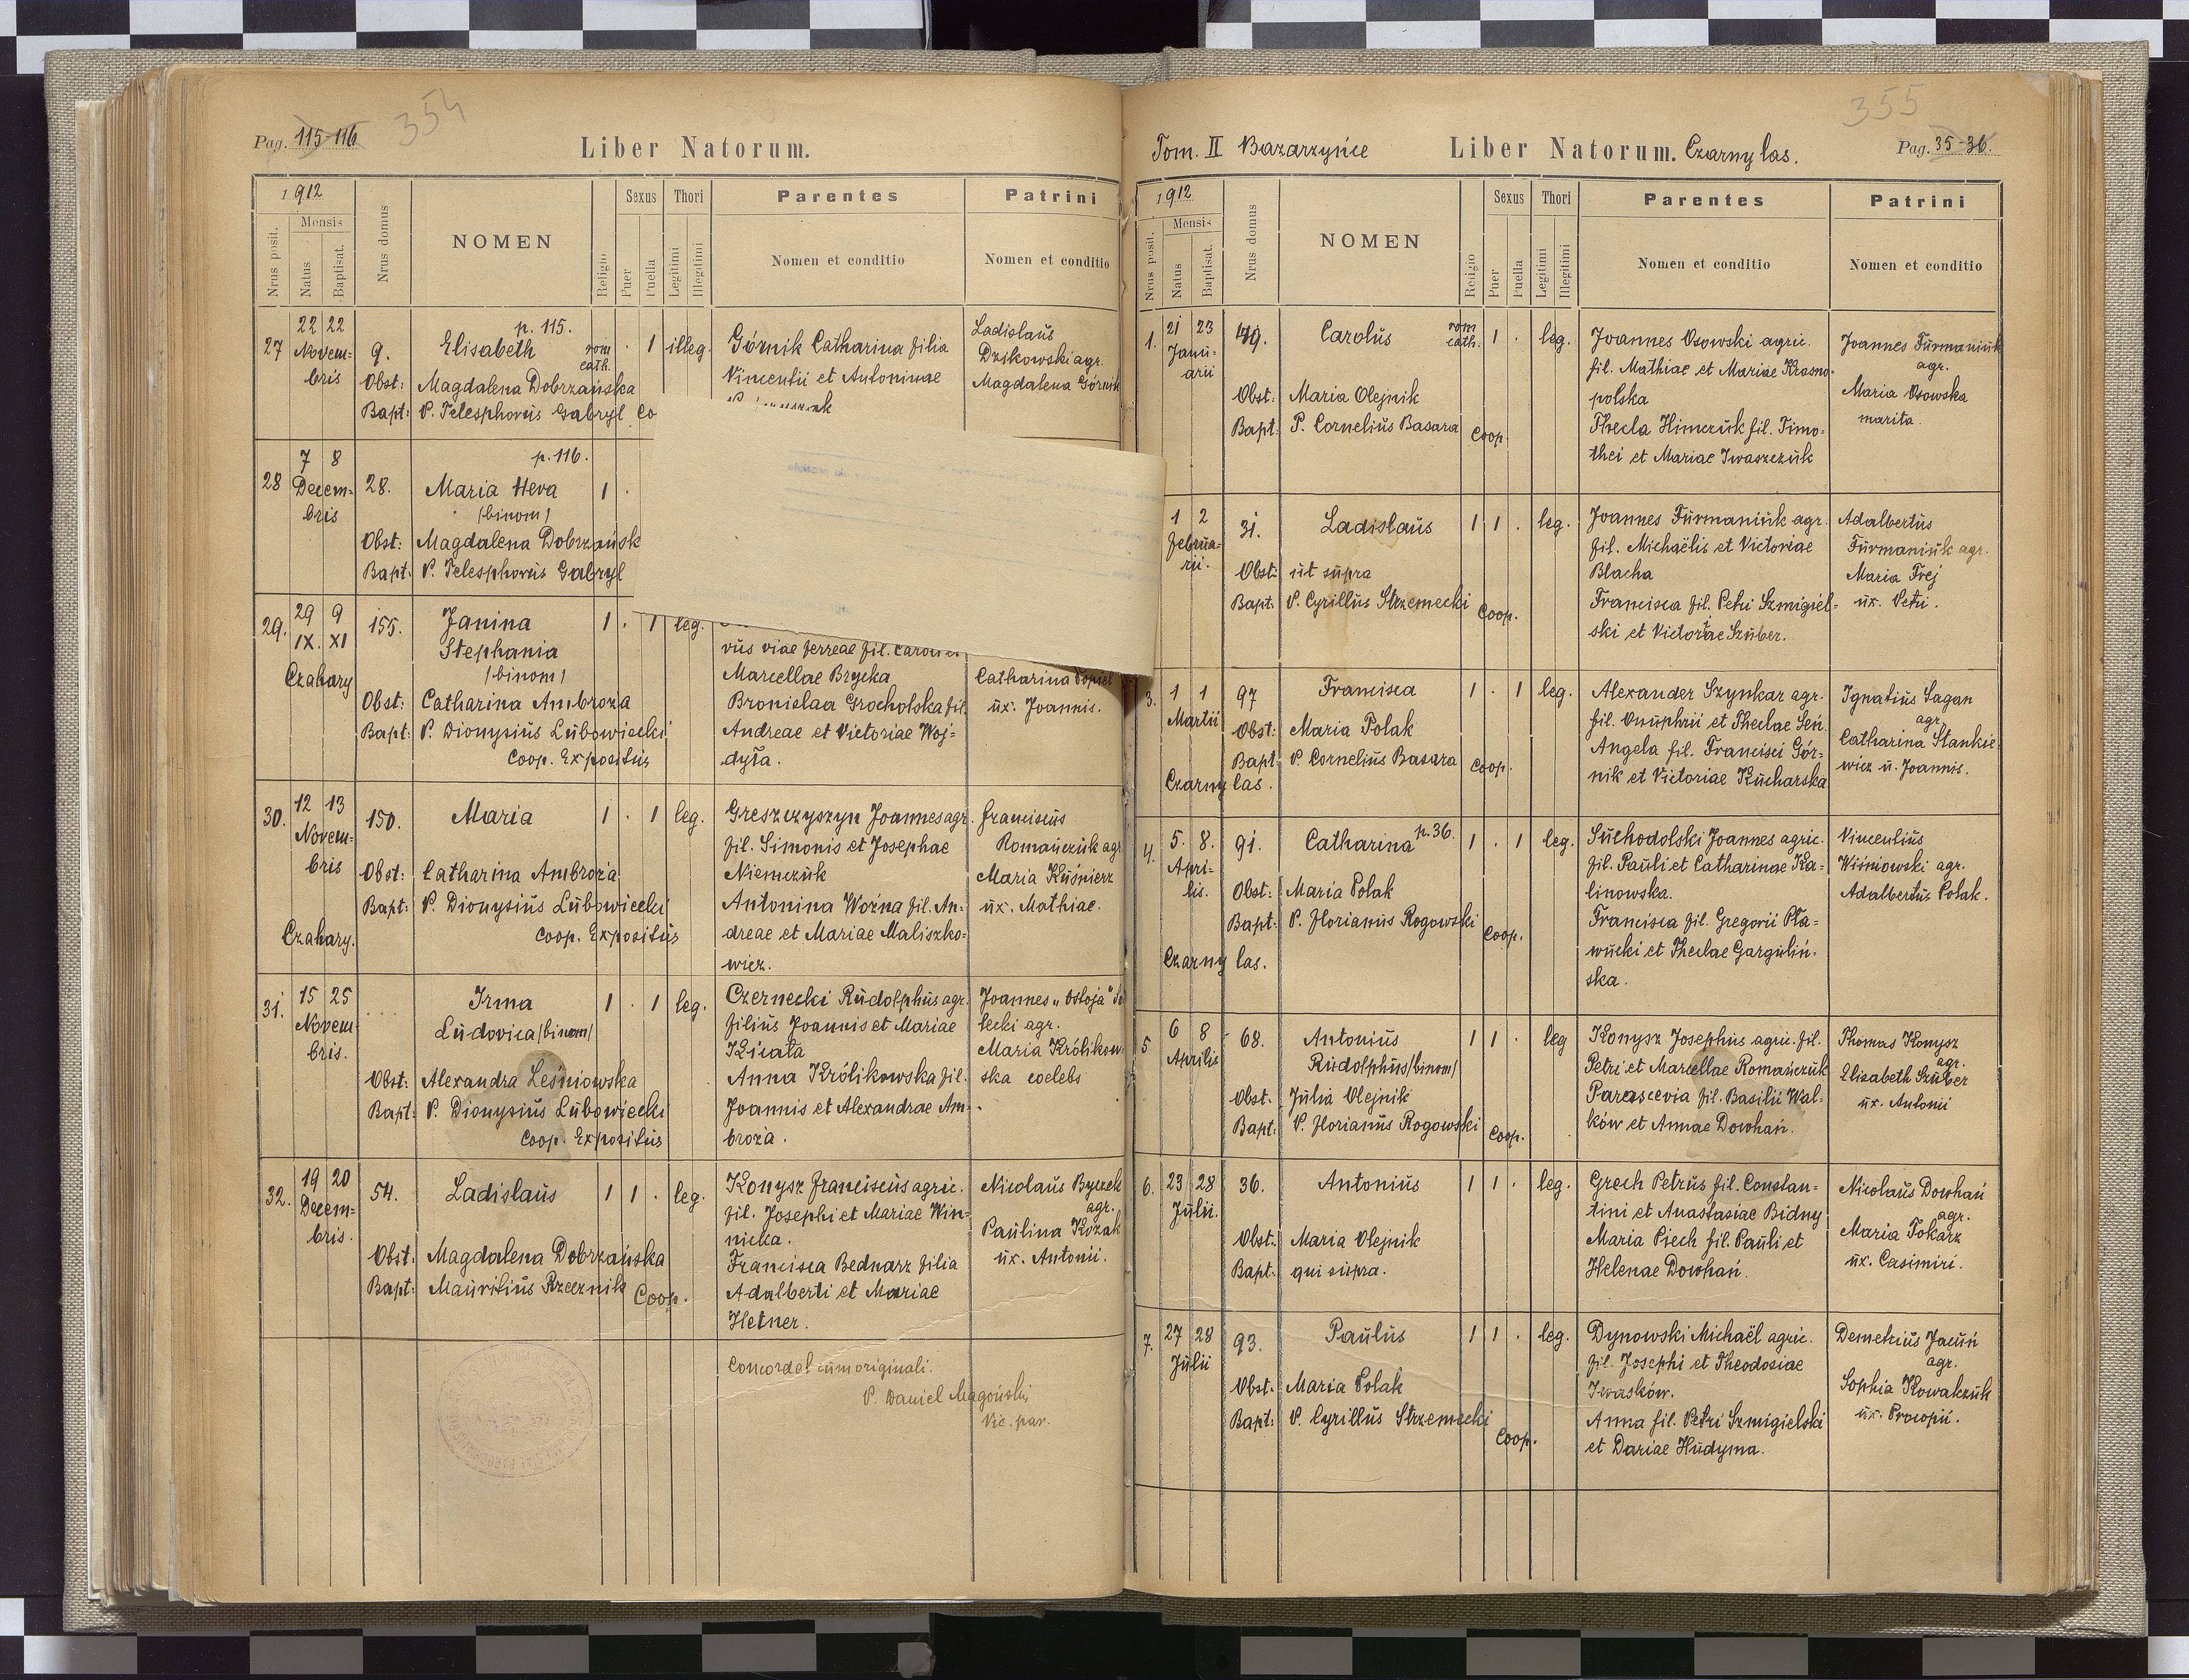 354
Pag. 115-116
Liber Natorum.
1912
Nrus posit.
Mensis
Natus
Baptisat.
Nrus domus
NOMEN
Religio
Sexus
Puer
Puella
Thori
Legitimi
Illegitimi
Parentes
Nomen et conditio
Patrini
Nomen et conditio
27
22 22
Novem-
bris
9.
p. 115.
Elisabeth
rom
cath.
. 1 illeg.
Obst: Magdalena Dobrzańska
Bapt: P. Telesphorus Gabryl Co
Górnik Catharina filia
Vincentii et Antoninae
Ladislaus
Dzikowski agr.
Magdalena Górnik
28
7 8
Decem-
bris
28.
p. 116.
Maria Heva
/binom/
1 .
Obst: Magdalena Dobrzańsk
Bapt: P. Telesphorus Gabryl
29.
29 9
IX. XI
Czahary
155.
Janina
Stephania
/binom/
1 . 1 leg.
Obst: Catharina Ambroza
Bapt: P. Dionysius Lubowiecki
Coop. Expositus
vus viae ferreae fil. Caroli et
Marcellae Brycka
Bronislaa Grocholska fil.
Andreae et Victoriae Woj-
dyła.
Catharina Popiel
ux. Joannis.
30.
12 13
Novem-
bris
Czahary.
150.
Maria
1 . 1 leg.
Obst: Catharina Ambroża
Bapt: P. Dionysius Lubowiecki
Coop. Expositus
Greszczyszyn Joannes agr.
fil. Simonis et Josephae
Niemczuk
Antonina Woźna fil. An-
dreae et Mariae Maliszko-
wicz.
Franciscus
Romańczuk agr
Maria Kuśnierz
ux. Mathiae.
31.
15 25
Novem-
bris.
....
Irma
Ludovica /binom/
1 . 1 leg.
Obst: Alexandra Leśniowska
Bapt: P. Dionysius Lubowiecki
Coop. Expositus
Czernecki Rudolphus agr.
filius Joannis et Mariae
Kicała
Anna Królikowska fil.
Joannis et Alexandrae Am-
broża.
Joannes „Ostoja"
lecki agr.
Maria Królikow-
ska coelebs
32.
19 20
Decem-
bris.
54.
Ladislaus
1 1 . leg.
Obst: Magdalena Dobrzańska
Bapt: Mauritius Rzecznik Coop.
Konysz Franciscus agric.
fil. Josephi et Mariae Win-
nicka.
Francisca Bednarz filia
Adalberti et Mariae
Hetner.
Nicolaus Byczek
agr.
Paulina Kozak
ux. Antonii.
Concordat cum originali.
P. Daniel Magoński
Vic. par.
355
Tom. II Bazarzynce
Liber Natorum. Czarny las.
Pag. 35-36.
1912
Nrus posit.
Mensis
Natus
Baptisat.
Nrus domus
NOMEN
Religio
Sexus
Puer
Puella
Thori
Legitimi
Illegitimi
Parentes
Nomen et conditio
Patrini
Nomen et conditio
1.
21 23
Janu-
arii
49.
Carolus
rom
cath.
1 . leg.
Obst: Maria Olejnik
Bapt: P. Cornelius Basara Coop.
Joannes Osowski agric.
fil. Mathiae et Mariae Krasno-
polska
Thecla Himczuk fil. Timo-
thei et Mariae Iwaszczuk
Joannes Furmaniuk
agr.
Maria Osowska
marita.
1 2
Februa-
rii.
31.
Ladislaus
1 1 . leg.
Obst: ut supra
Bapt: P. Cyrillus Strzemecki Coop.
Joannes Furmaniuk agr.
fil. Michaëlis et Victoriae
Blacha
Francisca fil. Petri Szmigiel-
ski et Victoriae Szuber.
Adalbertus
Furmaniuk agr.
Maria Frej
ux. Petri.
3.
1 1
Martii
97
Francisca
1 . 1 leg.
Obst: Maria Polak
Bapt: P. Cornelius Basara Coop.
Czarny las.
Alexander Szynkar agr.
fil. Onuphrii et Theclae Sen
Angela fil. Francisci Gór-
nik et Victoriae Kucharska
Ignatius Sagan
agr.
Catharina Stankie-
wicz u. Joannis.
4.
5. 8.
Apri-
lis.
91.
Catharina p. 36.
1 . 1 leg.
Obst: Maria Polak
Bapt: P. Florianus Rogowski Coop.
Czarny las.
Suchodolski Joannes agric.
fil. Pauli et Catharinae Ka-
linowska.
Francisca fil. Gregorii Pła-
wucki et Theclae Garguliń-
ska.
Vincentius
Wiśniowski agr.
Adalbertus Polak.
5
6 8
Aprilis
68.
Antonius
Rudolphus /binom/
1 1 . leg
Obst. Julia Olejnik
Bapt: P. Florianus Rogowski Coop.
Konysz Josephus agric. fil.
Petri et Marcellae Romańczuk
Parascevia fil. Basilii Wal-
ków et Annae Dowhań.
Thomas Konysz
agr.
Elisabeth Szuber
ux. Antonii
6.
23 28
Julii.
36.
Antonius
1 1 . leg.
Obst: Maria Olejnik
Bapt: qui supra.
Grech Petrus fil. Constan-
tini et Anastasiae Bidny
Maria Piech fil. Pauli et
Helenae Dowhań.
Nicolaus Dowhań
agr.
Maria Tokarz
ux. Casimiri.
7.
27 28
Julii
93.
Paulus
1 1 . leg.
Obst. Maria Polak
Bapt: P. Cyrillus Strzemecki Coop.
Dynowski Michaël agric.
fil. Josephi et Theodosiae
Iwasków.
Anna fil. Petri Szmigielski
et Dariae Hudyma.
Demetrius Jacuń
agr.
Sophia Kowalczuk
ux. Procopii.